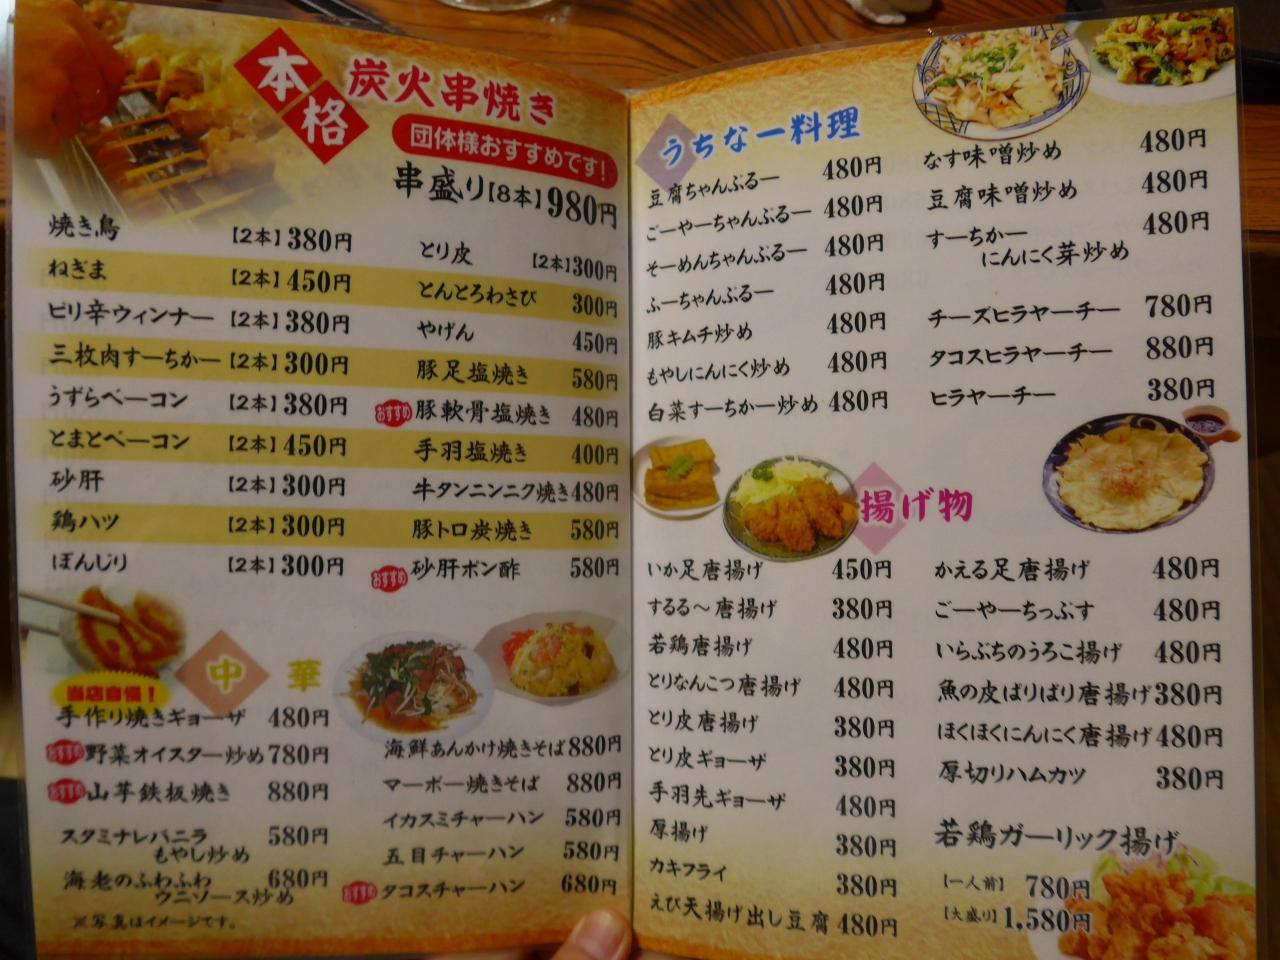 本格
炭火串焼き
団体様おすすめです!
串盛り【8本】980円
焼き鳥 【2本】380円
ねぎま 【2本】450円
ピリ辛ウィンナー 【2本】380円
三枚肉すーちかー 【2本】300円
うずらベーコン 【2本】380円
とまとベーコン 【2本】450円
砂肝 【2本】300円
鶏ハツ 【2本】300円
ぼんじり 【2本】300円
とり皮 【2本】300円
とんとろわさび 300円
やげん 450円
豚足塩焼き 580円
おすすめ 豚軟骨塩焼き 480円
手羽塩焼き 400円
牛タンニンニク焼き 480円
豚トロ炭焼き 580円
おすすめ 砂肝ポン酢 580円
中華
当店自慢!
手作り焼きギョーザ 480円
おすすめ 野菜オイスター炒め 780円
おすすめ 山芋鉄板焼き 880円
スタミナレバニラ
もやし炒め 580円
海老のふわふわ
ウニソース炒め 680円
※写真はイメージです。
海鮮あんかけ焼きそば 880円
マーボー焼きそば 880円
イカスミチャーハン 580円
五目チャーハン 580円
おすすめ タコスチャーハン 680円
うちなー料理
豆腐ちゃんぷるー 480円
ごーやーちゃんぷるー 480円
そーめんちゃんぷるー 480円
ふーちゃんぷるー 480円
豚キムチ炒め 480円
もやしにんにく炒め 480円
白菜すーちかー炒め 480円
なす味噌炒め 480円
豆腐味噌炒め 480円
すーちかー
にんにく芽炒め 480円
チーズヒラヤーチー 780円
タコスヒラヤーチー 880円
ヒラヤーチー 380円
揚げ物
いか足唐揚げ 450円
するる～唐揚げ 380円
若鶏唐揚げ 480円
とりなんこつ唐揚げ 480円
とり皮唐揚げ 380円
とり皮ギョーザ 380円
手羽先ギョーザ 480円
厚揚げ 380円
カキフライ 380円
えび天揚げ出し豆腐 480円
かえる足唐揚げ 480円
ごーやーちっぷす 480円
いらぶちのうろこ揚げ 480円
魚の皮ぱりぱり唐揚げ 380円
ほくほくにんにく唐揚げ 480円
厚切りハムカツ 380円
若鶏ガーリック揚げ
【一人前】 780円
【大盛り】 1,580円